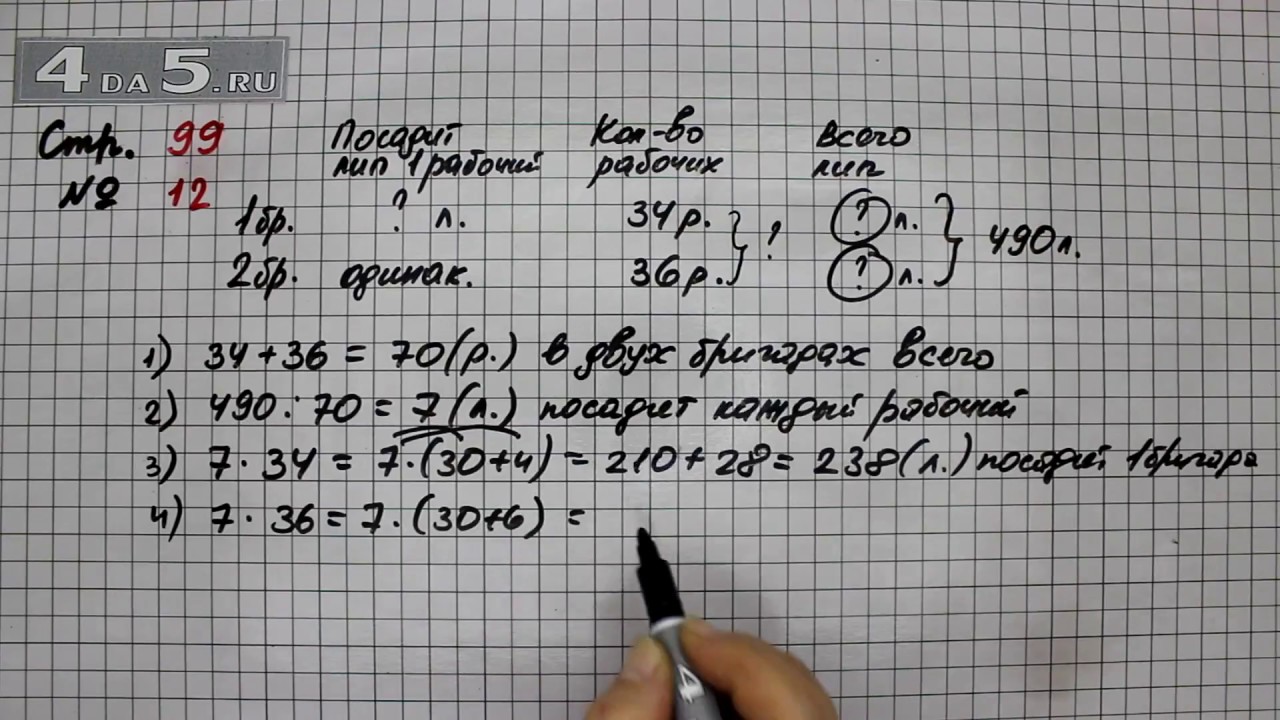 4DA5.RU
Стр. 99 Посадит Кол-во Всего
№ 12 лип 1 рабочий рабочих лип
1бр. ? л. 34р. } ? ? л. } 490л.
2бр. одинак. 36р. ? л.
1) 34+36 = 70(р.) в двух бригадах всего
2) 490:70 = 7(л.) посадит каждый рабочий
3) 7·34 = 7·(30+4) = 210+28 = 238(л.) посадит 1бригада
4) 7·36 = 7·(30+6) =